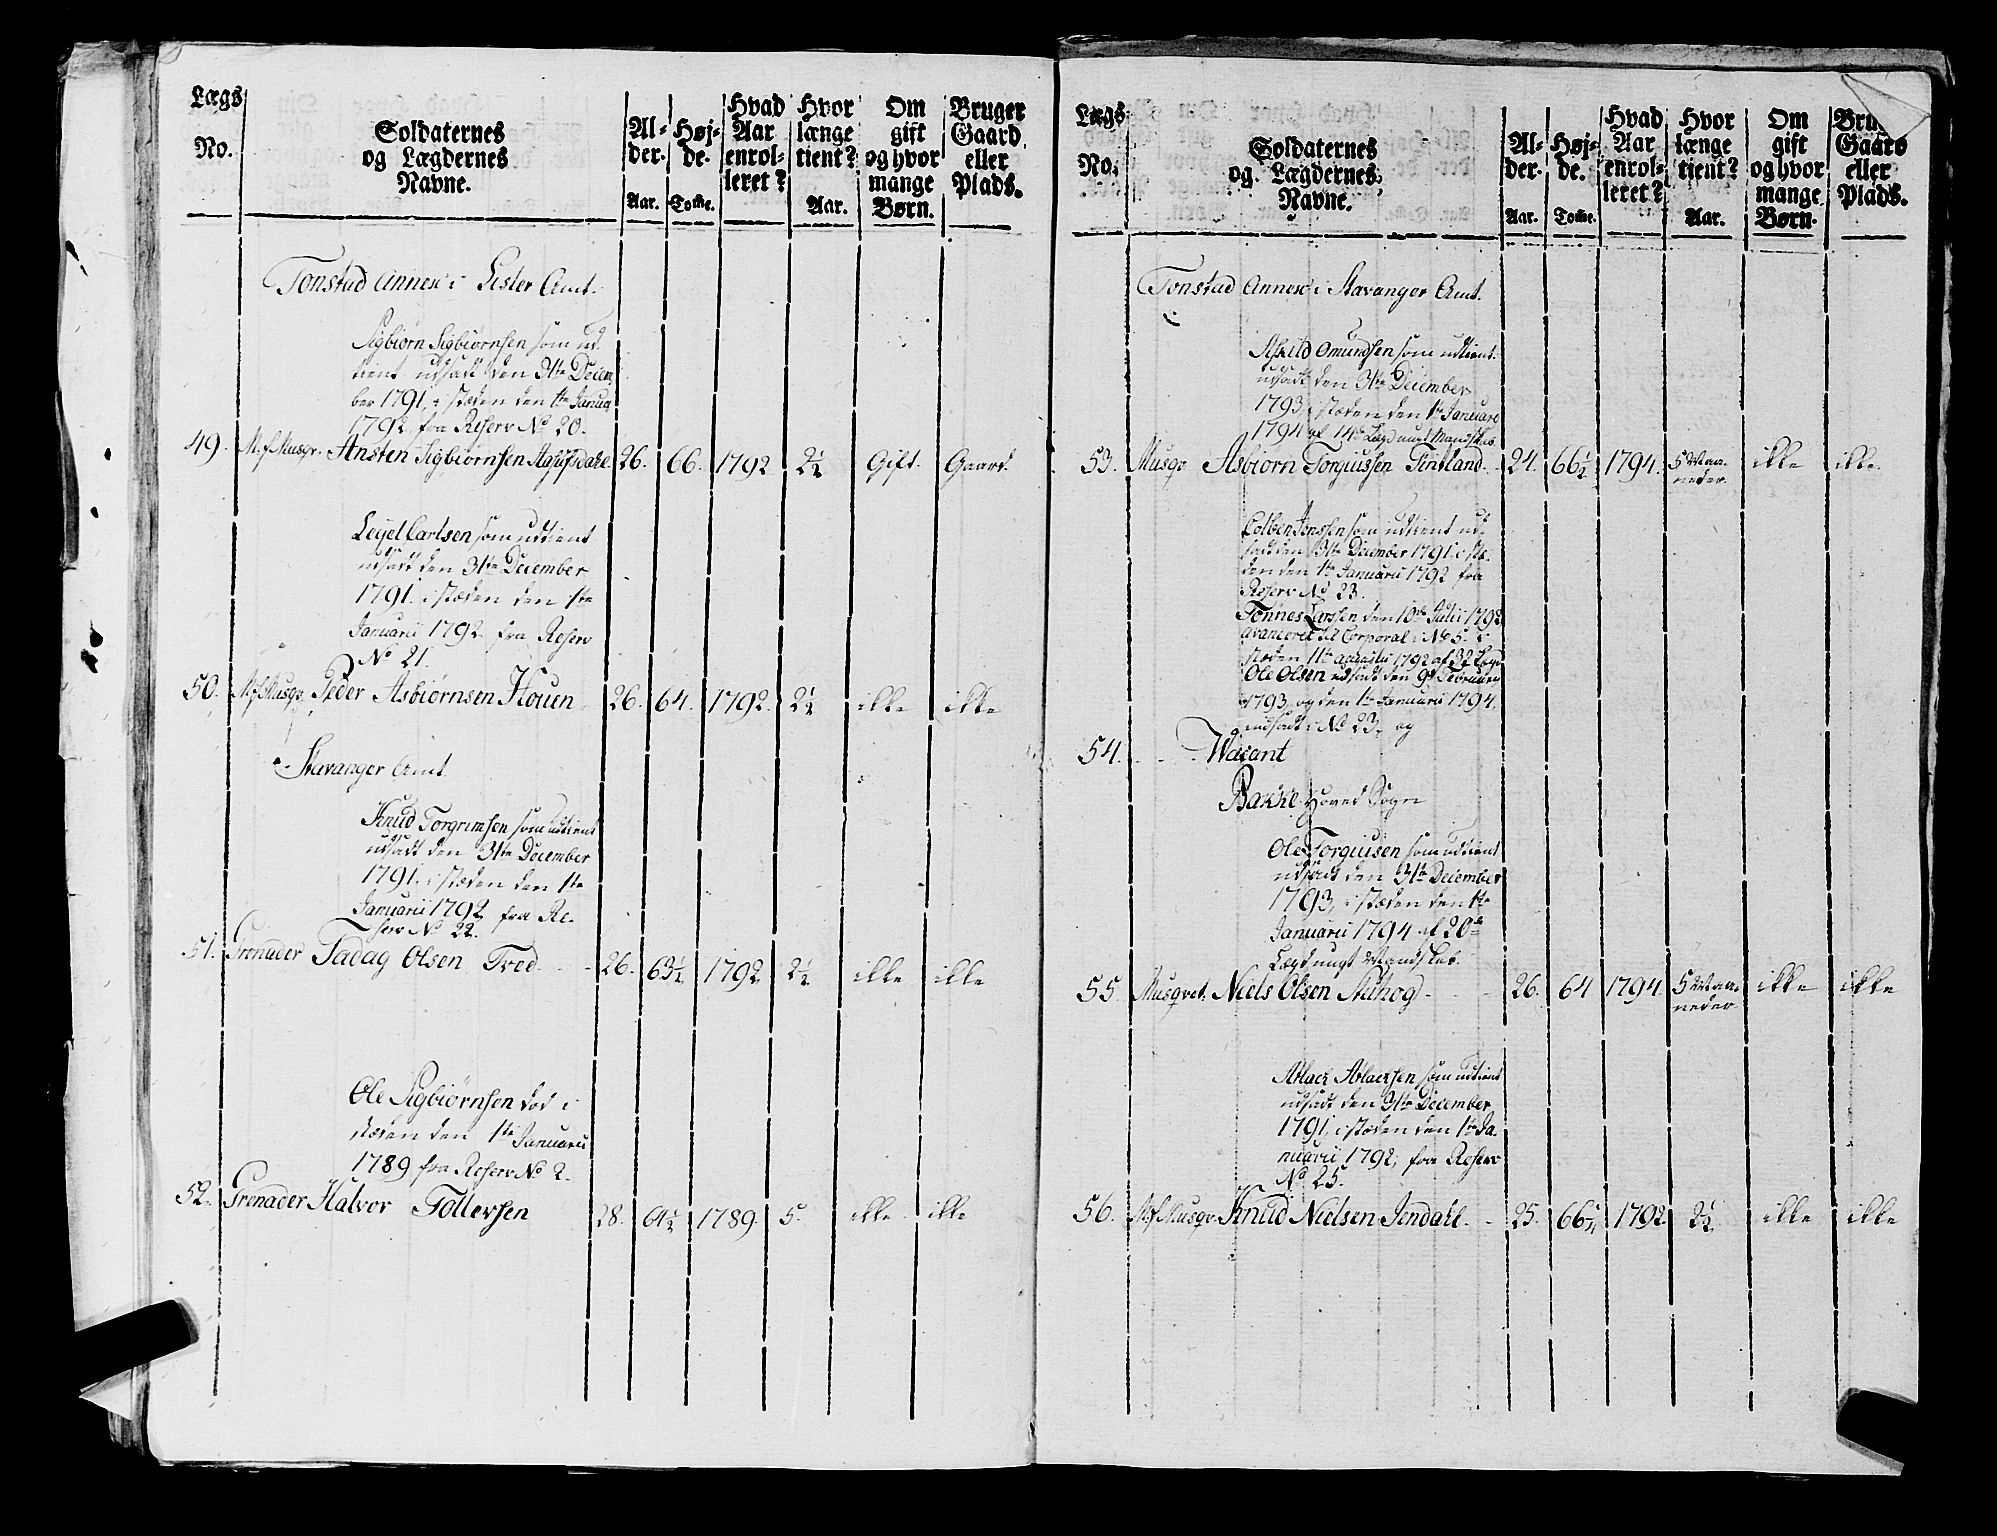 Lægs No.
Soldaternes og Lægdernes Navne.
Al- der. Aar.
Høj- de. Tomme.
Hvad Aar enrol- leret?
Hvor længe tient? Aar.
Om gift og hvor mange Børn.
Bruger Gaard eller Plads.
Tonstad Annex i Lister Amt.
Sigbiørn Sigbiørnsen som ud
tient udsadt den 31te Decem
ber 1791, i stæden den 1te Janua
1792 fra Reserv No 20.
49. M.f Musqr. Ansten Sigbiørnsen 26. 66. 1792 2½ Gift. Gaard.
Leyel Carlsen som udtient
udsadt den 31te December
1791. i stæden den 1te
Januarii 1792 fra Reserv
No 21.
50. M.f Musqr. Peder Asbiørnsen Houen 26. 64. 1792. 2½ ikke ikke
Stavanger Amt.
Knud Torgrimsen som udtient
udsadt den 31te December
1791, i stæden den 1te
Januarii 1792 fra Re-
serv No 22.
51. Grenader Tadag Olsen Tved. 26. 63½ 1792 2½ ikke ikke
Ole Sigbiørnsen død i
stæden den 1te Januarii
1789 fra Reserv No 2.
52. Grenader Halvor Tollevsen 28. 64½ 1789. 5. ikke ikke
Lægs No.
Soldaternes og Lægdernes Navne.
Al- der. Aar.
Høj- de. Tomme.
Hvad Aar enrol- leret?
Hvor længe tient? Aar.
Om gift og hvor mange Børn.
Gaard eller Plads.
Tonstad Annex i Stavanger Amt.
Askild Omundsen som udtient
udsadt den 31te December
1793, i stæden den 1te Januarii
1794 af 14de Lægd ungt Mandskab
53. Musqr Asbiørn Torgiussen Fintland 24. 66½ 1794. 5 Maa- neder ikke ikke.
Colben Jenssen som udtient ud-
sadt den 31te December 1791. i stæ-
den den 1te Januarii 1792 fra
Reserv No 23.
Tønnes Larssen den 10de Julii 1792
avanceret til Corporal i No 5. i
stæden 11te Augusti 1792 af 32 Lægd
Ole Olsen udsadt den 9de Februarii
1793, og den 1te Januarii 1794,
indsadt i No 23, og
54. Vacant
Bakke Hoved Sogn
Ole Torguisen som udtient
udsadt den 31te December
1793, i stæden den 1te
Januarii 1794 af 20de
Lægd ungt Mandskab
55. Musqvet. Niels Olsen Stuhog 26. 64 1794. 5 Maa- neder ikke ikke
Ablach Ablachsen som udtient
udsadt den 31te December
1791, i stæden den 1te Ja-
nuarii 1792, fra Reserv
No 25.
56. M.f Musqr Knud Nielsen Jendahl 25. 66¼ 1792. 2½ ikke ikke